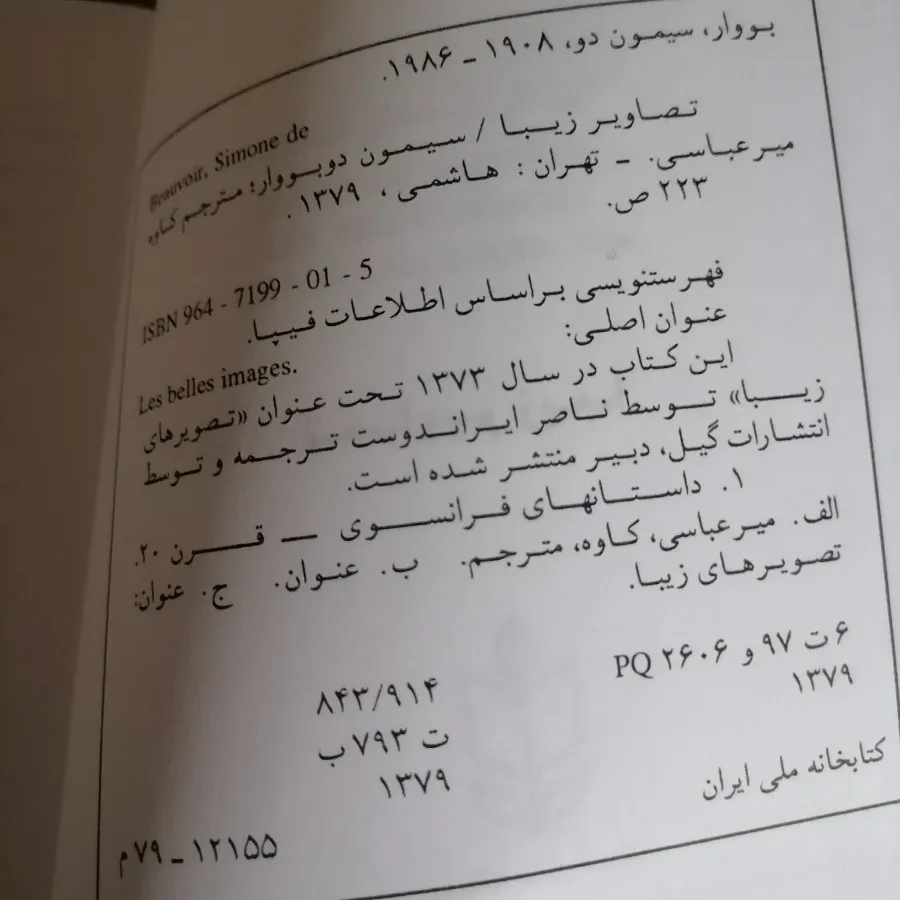 بووار، سیمون دو، ۱۹۰۸ ـ ۱۹۸۶.
Beauvoir, Simone de
تصاویر زیبا / سیمون دوبووار؛ مترجم کاوه
میرعباسی. ـ تهران : هاشمی ، ۱۳۷۹ .
۲۲۳ ص.
ISBN 964 - 7199 - 01 - 5
فهرستنویسی براساس اطلاعات فیپا.
عنوان اصلی:
Les belles images.
این کتاب در سال ۱۳۷۳ تحت عنوان «تصویرهای
زیبا» توسط ناصر ایراندوست ترجمه و توسط
انتشارات گیل، دبیر منتشر شده است.
۱. داستانهای فرانسوی — قرن ۲۰.
الف. میرعباسی، کاوه، مترجم. ب. عنوان. ج. عنوان:
تصویرهای زیبا.
۶ ت ۹۷ و PQ ۲۶۰۶
۸۴۳/۹۱۴
۱۳۷۹
ت ۷۹۳ ب
۱۳۷۹
کتابخانه ملی ایران
۱۲۱۵۵ ـ ۷۹ م